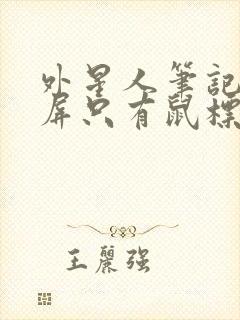 外星人筆記
屏只有鼠標
王麗强